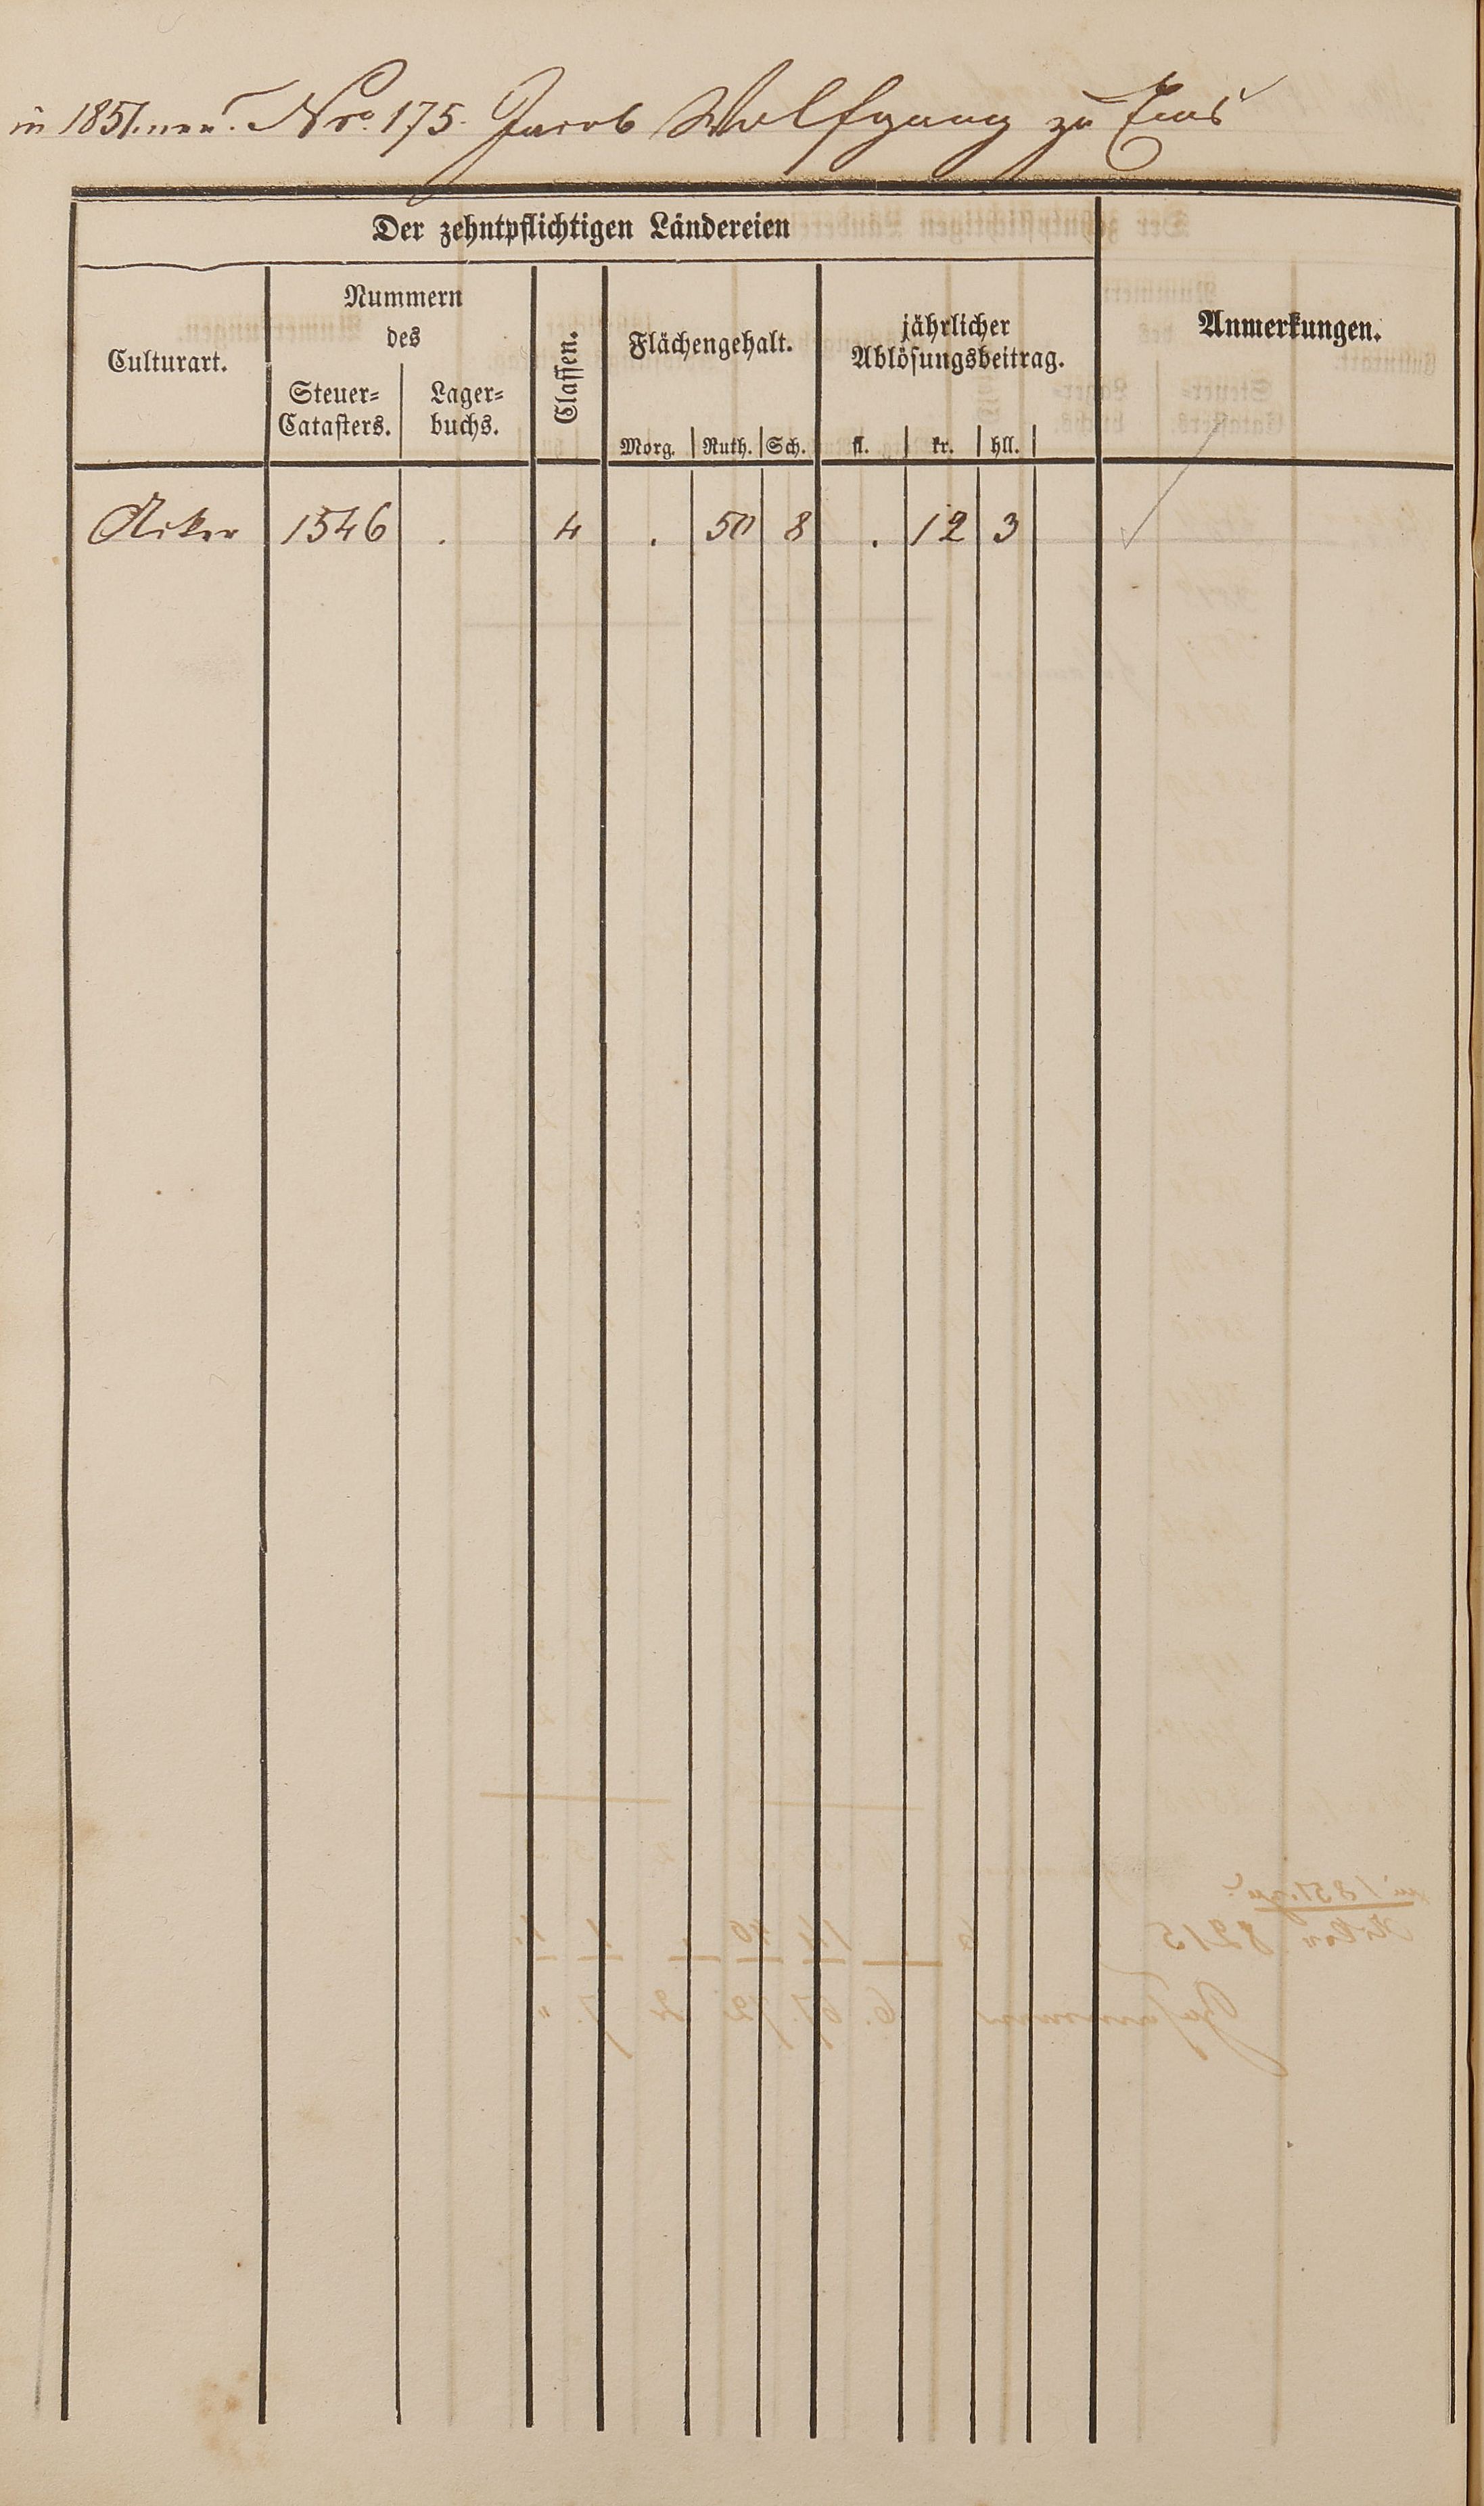 in 1851. neu. Nro. 175. Jacob Wolfgang zu Ems
Der zehntpflichtigen Ländereien
Culturart.
Nummern
des
Steuer-
Catasters.
Lager-
buchs.
Classen.
Flächengehalt.
Morg. Ruth. Sch.
jährlicher
Ablösungsbeitrag.
fl. kr. hll.
Anmerkungen.
Acker 1546 . 4 . 50 8 . 12 3